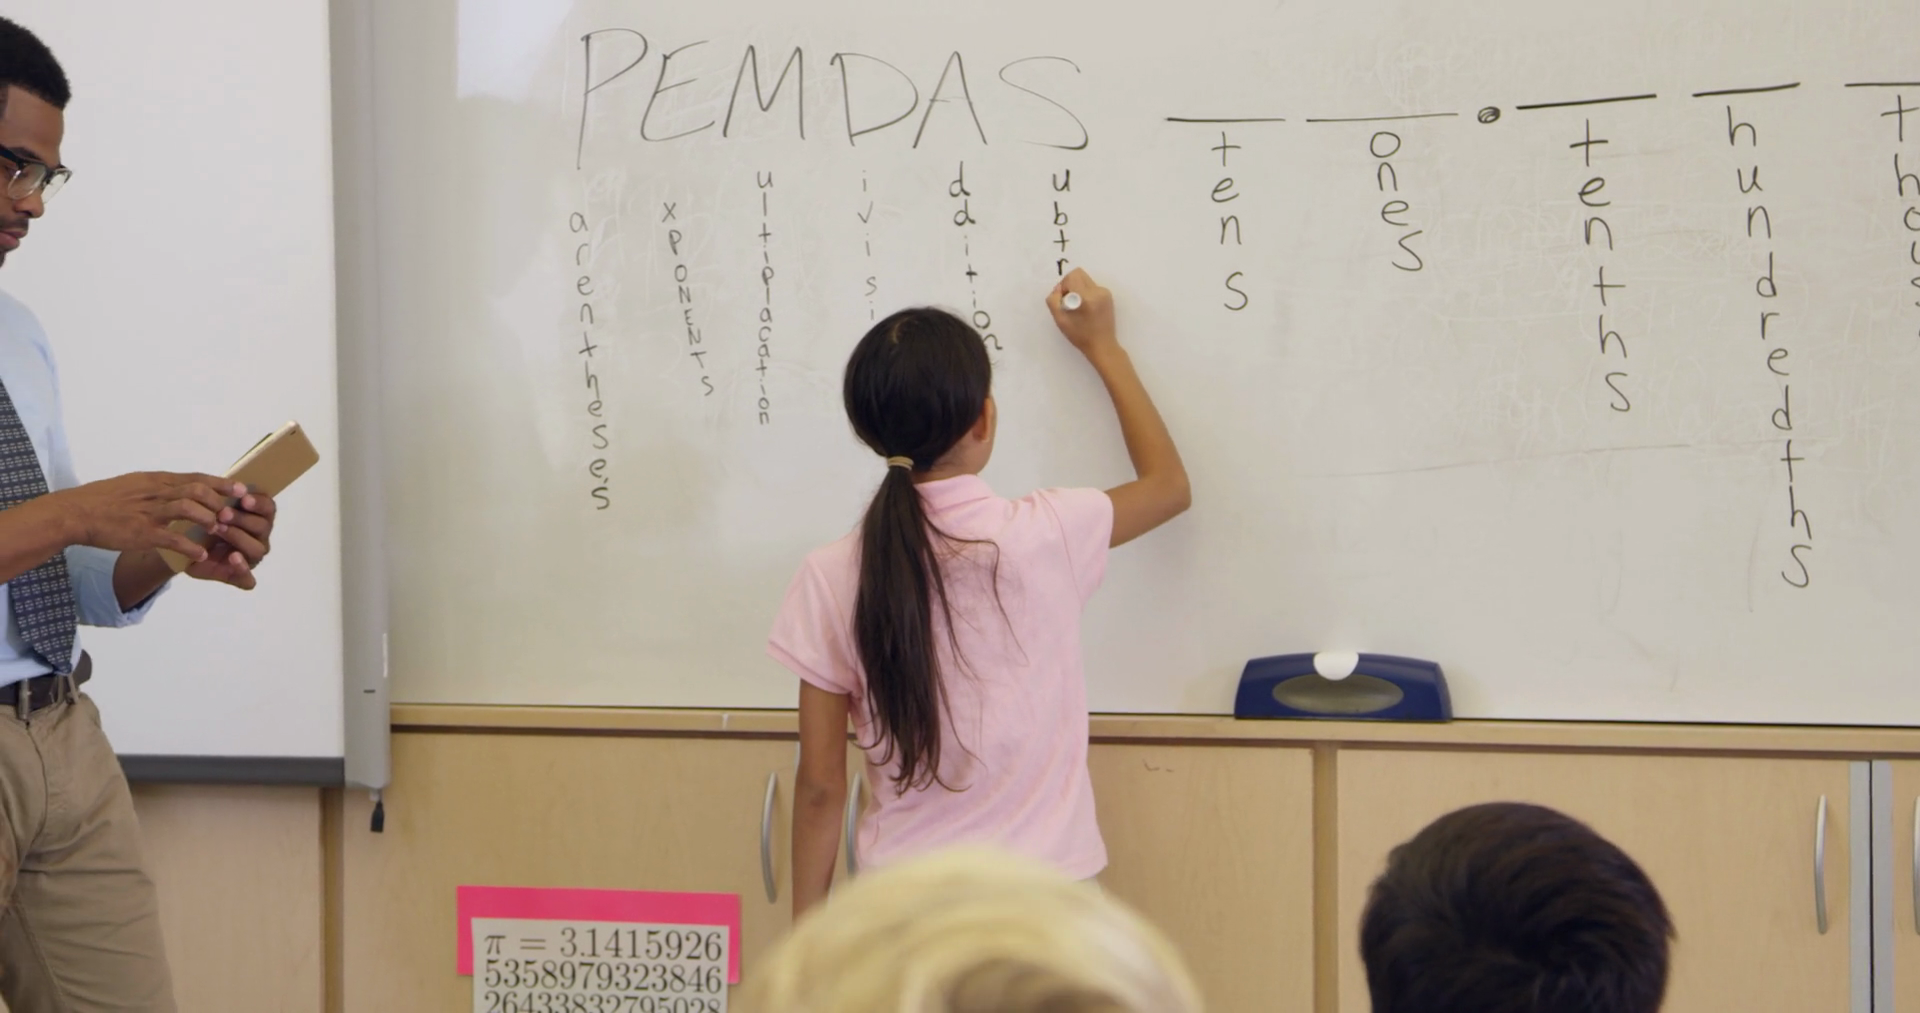 PEMDAS
arentheses
xPONENTS
ultiplacation
ivisi
ddition
ubtr
tens
ones
tenths
hundredths
thous
π = 3.1415926
5358979323846
26433832795028